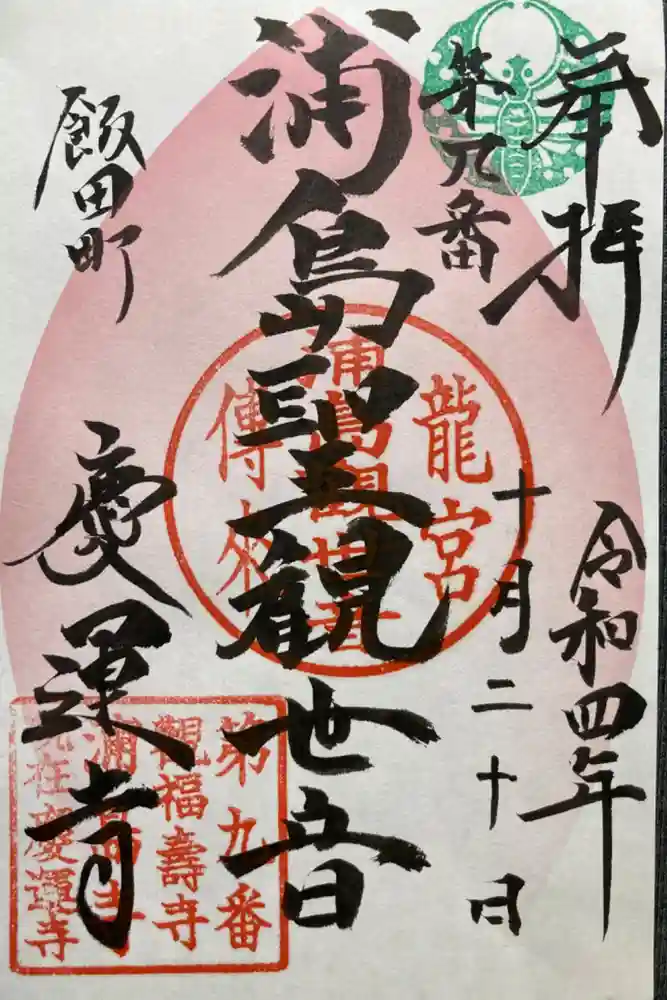 奉拝
第九番
令和四年
十月二十日
浦島聖観世音
飯田町
慶運寺
龍宮
浦島観世音
傳來
第九番
觀福壽寺
浦島寺
現在慶運寺